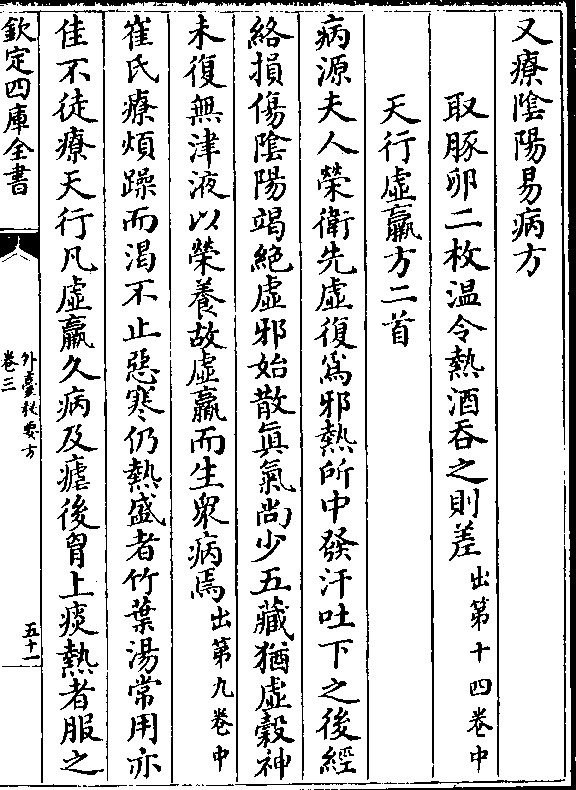 又療隂陽易病方
取豚卵二枚温令熱酒吞之則差出第十四卷中
天行虛羸方二首
病源夫人榮衛先虛復為邪熱所中發汗吐下之後經
絡損傷隂陽竭絕虛邪始散真氣尚少五藏猶虛穀神
未復無津液以榮養故虛羸而生衆病焉出第九卷中
崔氏療煩躁而渴不止惡寒仍熱盛者竹葉湯常用亦
佳不徒療天行凡虛羸久病及瘧後胷上痰熱者服之
欽定四庫全書
外臺秘要方
卷三
五十一